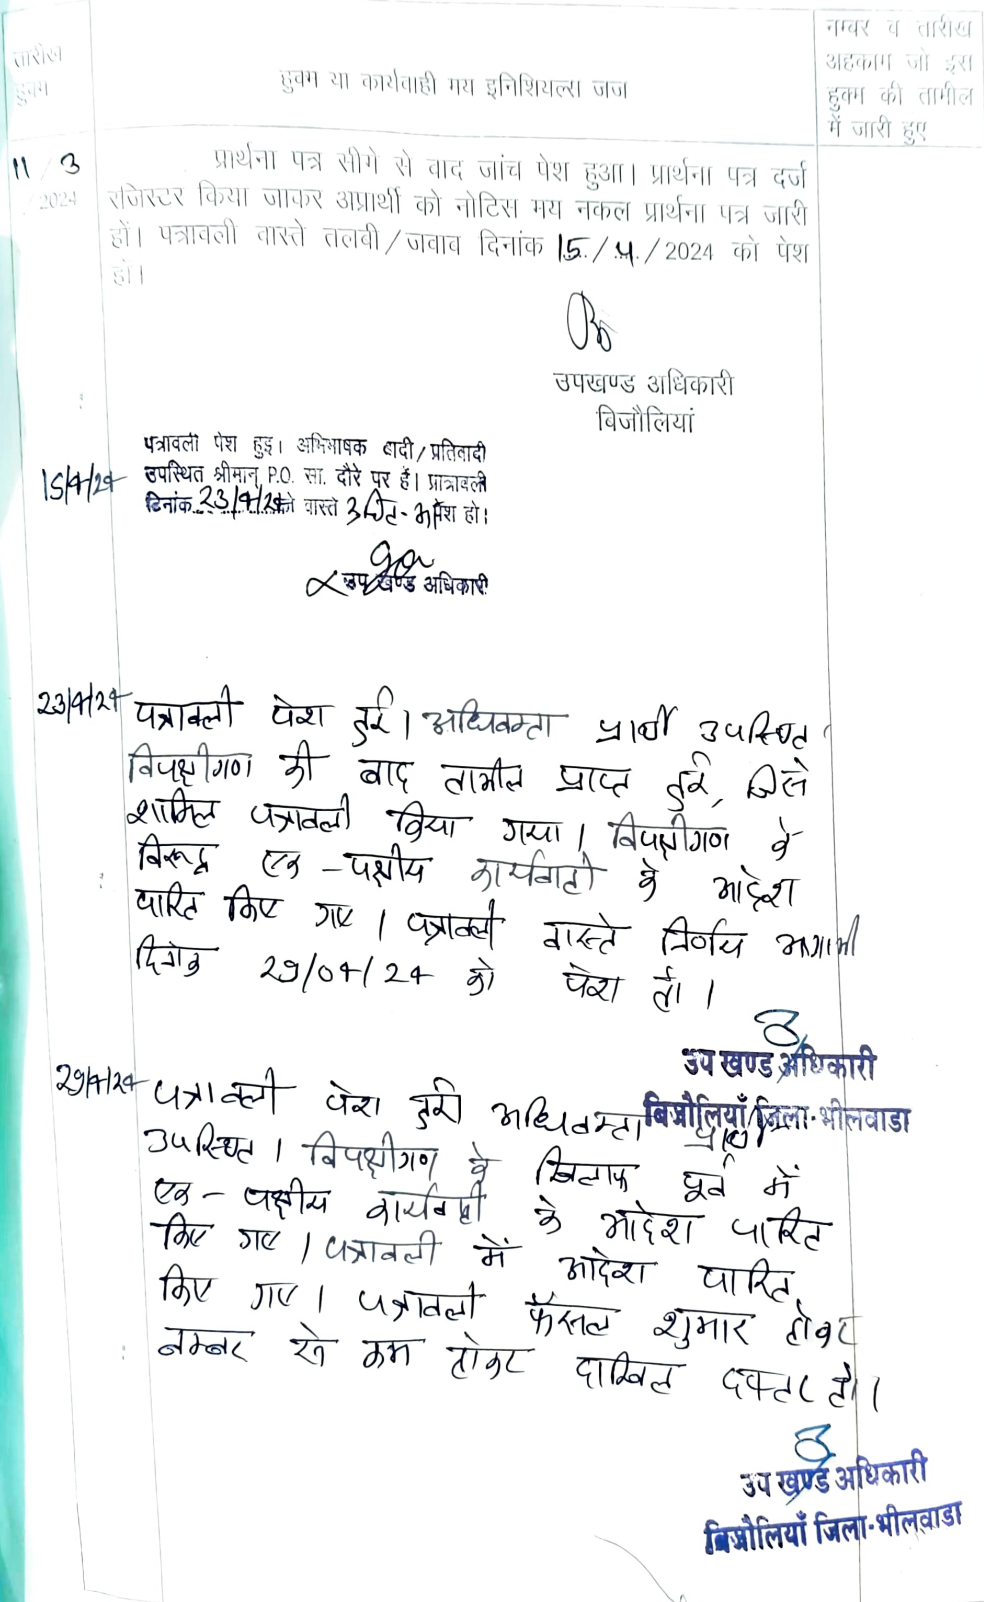 तारीख
हुक्म
हुक्म या कार्यवाही मय इनिशियल्स जज
नम्बर व तारीख
अहकाम जो इस
हुक्म की तामील
में जारी हुए
11/3
/2024
प्रार्थना पत्र सीगे से वाद जांच पेश हुआ। प्रार्थना पत्र दर्ज
रजिस्टर किया जाकर अप्रार्थी को नोटिस मय नकल प्रार्थना पत्र जारी
हों। पत्रावली वास्ते तलवी/जवाव दिनांक 15./4./2024 को पेश
हो।
उपखण्ड अधिकारी
बिजौलियां
15/4/24
पत्रावली पेश हुइ। अभिभाषक वादी/प्रतिवादी
उपस्थित श्रीमान् P.O. सा. दौरे पर हैं। प्रात्रावली
दिनांक 23/4/24 को वास्ते पेश हो।
उप खण्ड अधिकारी
23/4/24
पत्रावली पेश हुई। अधिवक्ता प्रार्थी उपस्थित।
विपक्षीगण की बाद तामील प्राप्त हुई, जिसे
शामिल पत्रावली किया गया। विपक्षीगण के
विरूद्ध एक-पक्षीय कार्यवाही के आदेश
पारित किए गए। पत्रावली वास्ते निर्णय आगामी
दिनांक 29/04/24 को पेश हो।
उप खण्ड अधिकारी
बिजौलियाँ जिला-भीलवाडा
29/4/24
पत्रावली पेश हुई। अधिवक्ता प्रार्थी
उपस्थित। विपक्षीगण के खिलाफ पूर्व में
एक-पक्षीय कार्यवाही के आदेश पारित
किए गए। पत्रावली में आदेश पारित
किए गए। पत्रावली फैसल शुमार होकर
नम्बर से कम होकर दाखिल दफ्तर हो।
उप खण्ड अधिकारी
बिजौलियाँ जिला-भीलवाडा